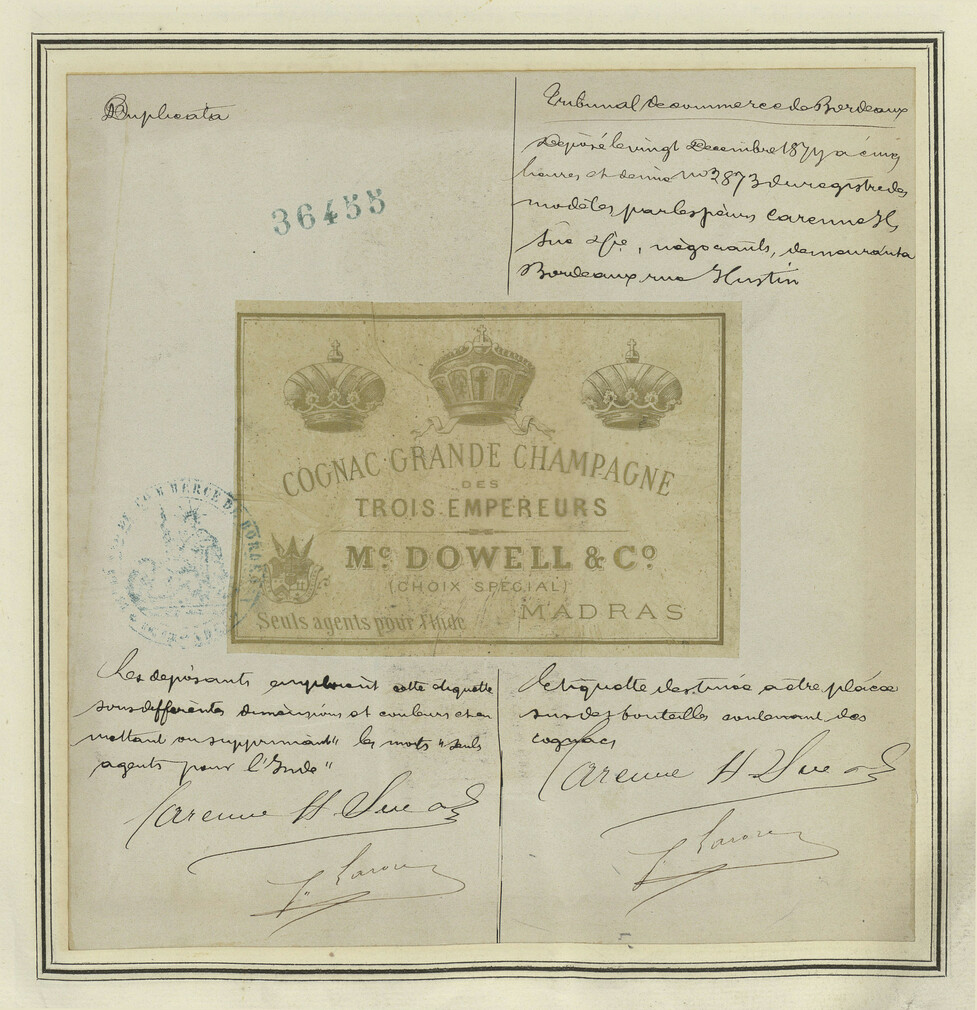 Duplicata
Tribunal de commerce de Bordeaux
Déposé le vingt Decembre 1877 a cinq
heures et demie no 2873 du registre des
modèles par les sieurs Carenne H
Sue & Cie, négociants, demeurant a
Bordeaux rue Hustin
36455
COGNAC GRANDE CHAMPAGNE
DES
TROIS EMPEREURS
Mc. DOWELL & Co.
(CHOIX SPECIAL)
MADRAS
Seuls agents pour l'Inde
COMMERCE DE BORDEAUX
Les déposants emploient cette étiquette
sous différentes dimensions et couleurs et en
mettant ou supprimant " les mots "seuls
agents pour l'Inde"
Carenne H Sue
Etiquette destinée a être placée
sur des bouteilles contenant des
cognacs
Carenne H Sue